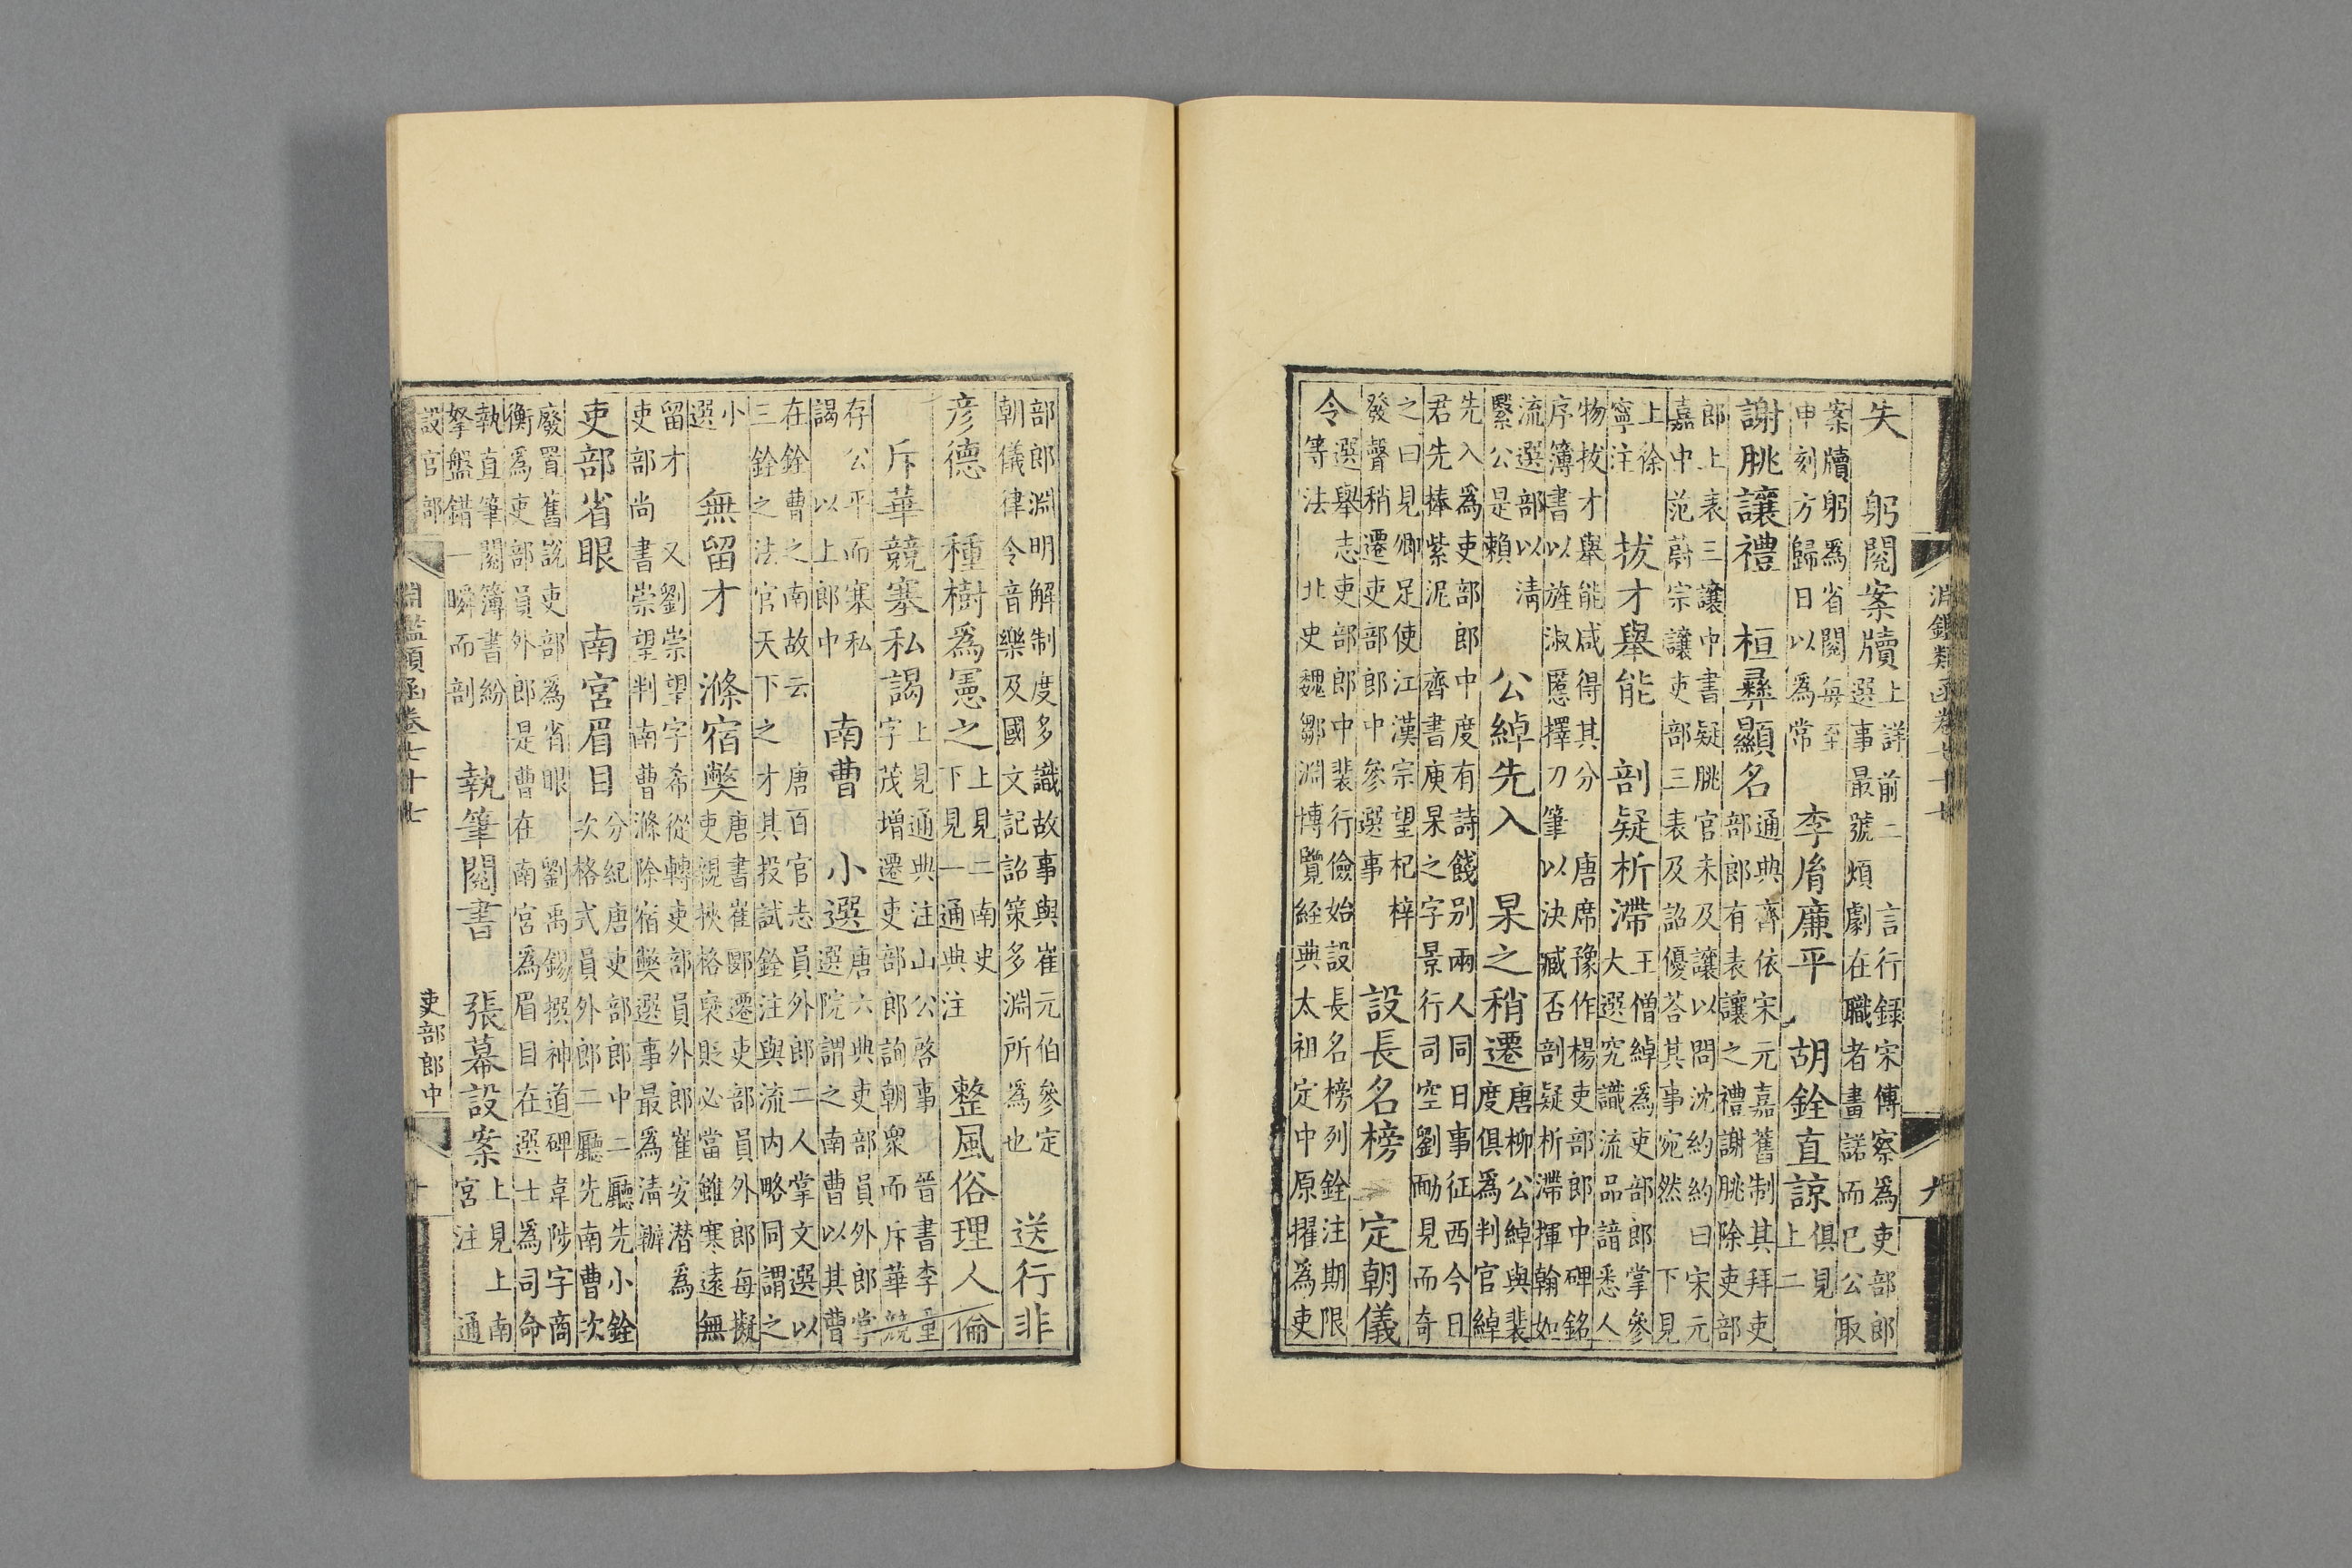 淵鑑類函卷七十七
九
失　躬閱案牘上詳前二
選事最號煩劇在職者畫諾而已公取
言行録宋傅察爲吏部郎
案牘躬爲省閱每至
申刻方歸日以爲常　李胤廉平　胡銓直諒俱見
上二
謝朓讓禮　桓彞顯名通典齊依宋元嘉舊制其拜吏
部郎有表讓之禮謝朓除吏部
郎上表三讓中書疑朓官未及讓以問沈約約曰宋元
嘉中范蔚宗讓吏部三表及詔優荅其事宛然　下見
上徐
寧注　拔才舉能　剖疑析滯王僧綽爲吏部郎掌參
大選究識流品諳悉人
物拔才舉能咸得其分　唐席豫作楊吏部郎中碑銘
序簿書以旌淑慝擇刀筆以決臧否剖疑析滯揮翰如
流選部以清
繄公是賴　公綽先入　杲之稍遷唐柳公綽與裴
度俱爲判官綽
先入爲吏部郎中度有詩餞别兩人同日事征西今日
君先捧紫泥　齊書庾杲之字景行司空劉勔見而奇
之曰見卿足使江漢宗望杞梓
發聲稍遷吏部郎中參選事　設長名榜　定朝儀
令選舉志吏部郎中裴行儉始設長名榜列銓注期限
等法　北史魏鄒淵博覽經典太祖定中原擢爲吏
部郎淵明解制度多識故事與崔元伯參定
朝儀律令音樂及國文記詔策多淵所爲也　送行非
彦德　種樹爲憲之上見二南史
下見一通典注　整風俗理人倫
斥華競塞私謁上見通典注山公啓事　晉書李重
字茂增遷吏部郎詢朝衆而斥華競
存公平而塞私
謁　以上郎中　南曹　小選唐六典吏部員外郎掌
選院謂之南曹以其曹
在銓曹之南故云　唐百官志員外郎二人掌文選以
三銓之法官天下之才其投試銓注與流内略同謂之
小
選　無留才　滌宿獘唐書崔郾遷吏部員外郎每擬
吏親挾格㮚賬必當雖寒遠無
留才　又劉崇望字希從轉吏部員外郎崔安潜爲
吏部尚書崇望判南曹滌除宿獘選事最爲淸辦
吏部省眼　南宮眉目分紀唐吏部郎中二廳先小銓
次格式員外郎二廳先南曹次
廢置舊說吏部爲省眼　劉禹錫撰神道碑韋陟字商
衡爲吏部員外郎是曹在南宮爲眉目在選士爲司命
執筆閱書　張幕設案上見上南
宮注　通
執直筆閱簿書紛
拏盤錯一瞬而剖
設官部
淵鑑類函卷七十七
吏部郎中
十